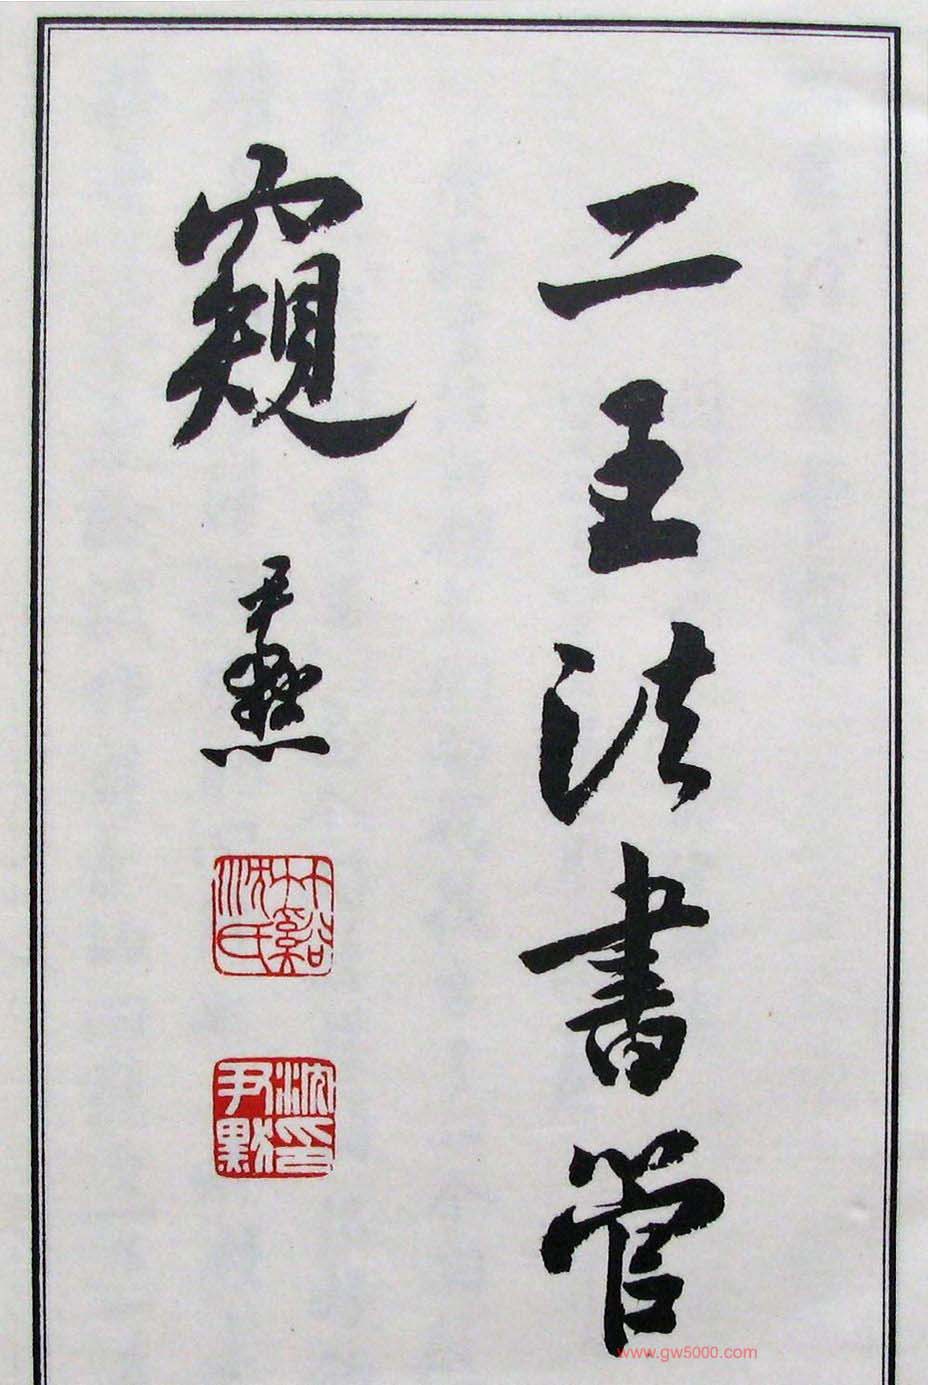 二王法書管
窺
尹默
竹谿沈氏
沈尹默印
www.gw5000.com